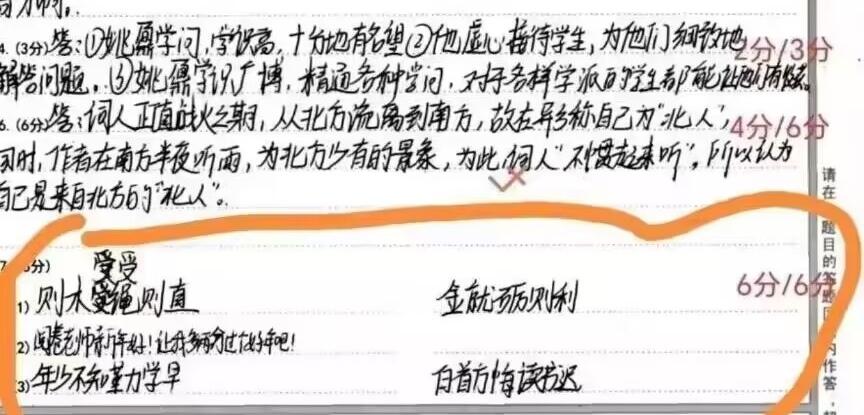 4. (3分)答:①姚鼐学问,学识高,十分地有名望②他虚心接待学生,为他们细致地 2分/3分
解答问题。③姚鼐学识广博,精通各种学问,对于各样学派的学生都能让他们有
6. (6分)答:词人正值战火之期,从北方流离到南方,故在异乡称自己为“北人”, 4分/6分
同时,作者在南方半夜听雨,为北方少有的景象,为此,词人“不惯起来听”。所以认为
自己是来自北方的“北人”。
受受
(1) 则木受绳则直 金就砺则利 6分/6分
(2) 阅卷老师新年好!让我多两分过个好年吧!
(3) 年少不知勤力学早 白首方悔读书迟
请在
题目的答题
内作答,